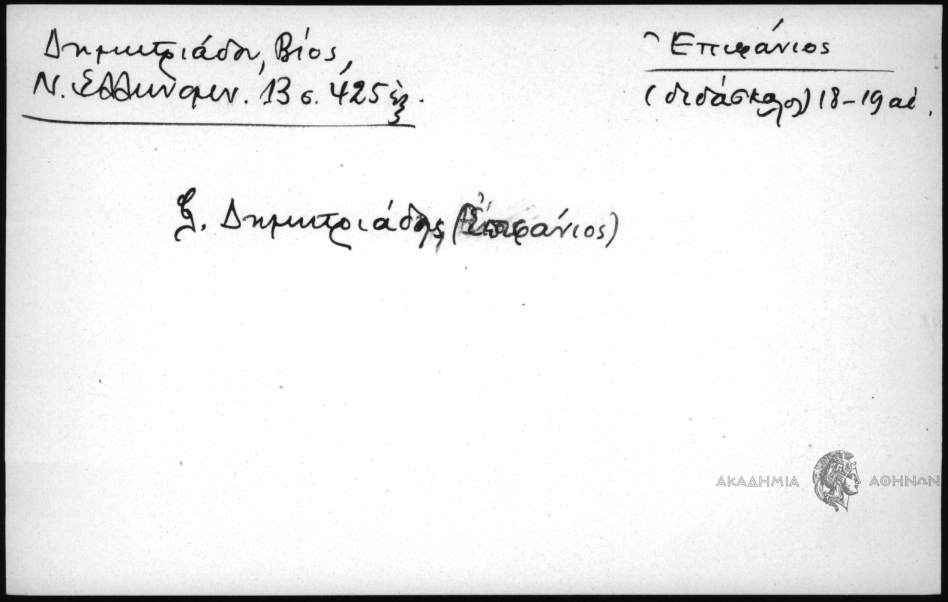 Δημητριάδου, Βίος,
Ν. Ελληνομν. 13 σ. 425 ἑξ.
Ἐπιφάνιος
(διδάσκαλος) 18-19 αἰ.
Ξ. Δημητριάδης (Ἐπιφάνιος)
ΑΚΑΔΗΜΙΑ ΑΘΗΝΩΝ